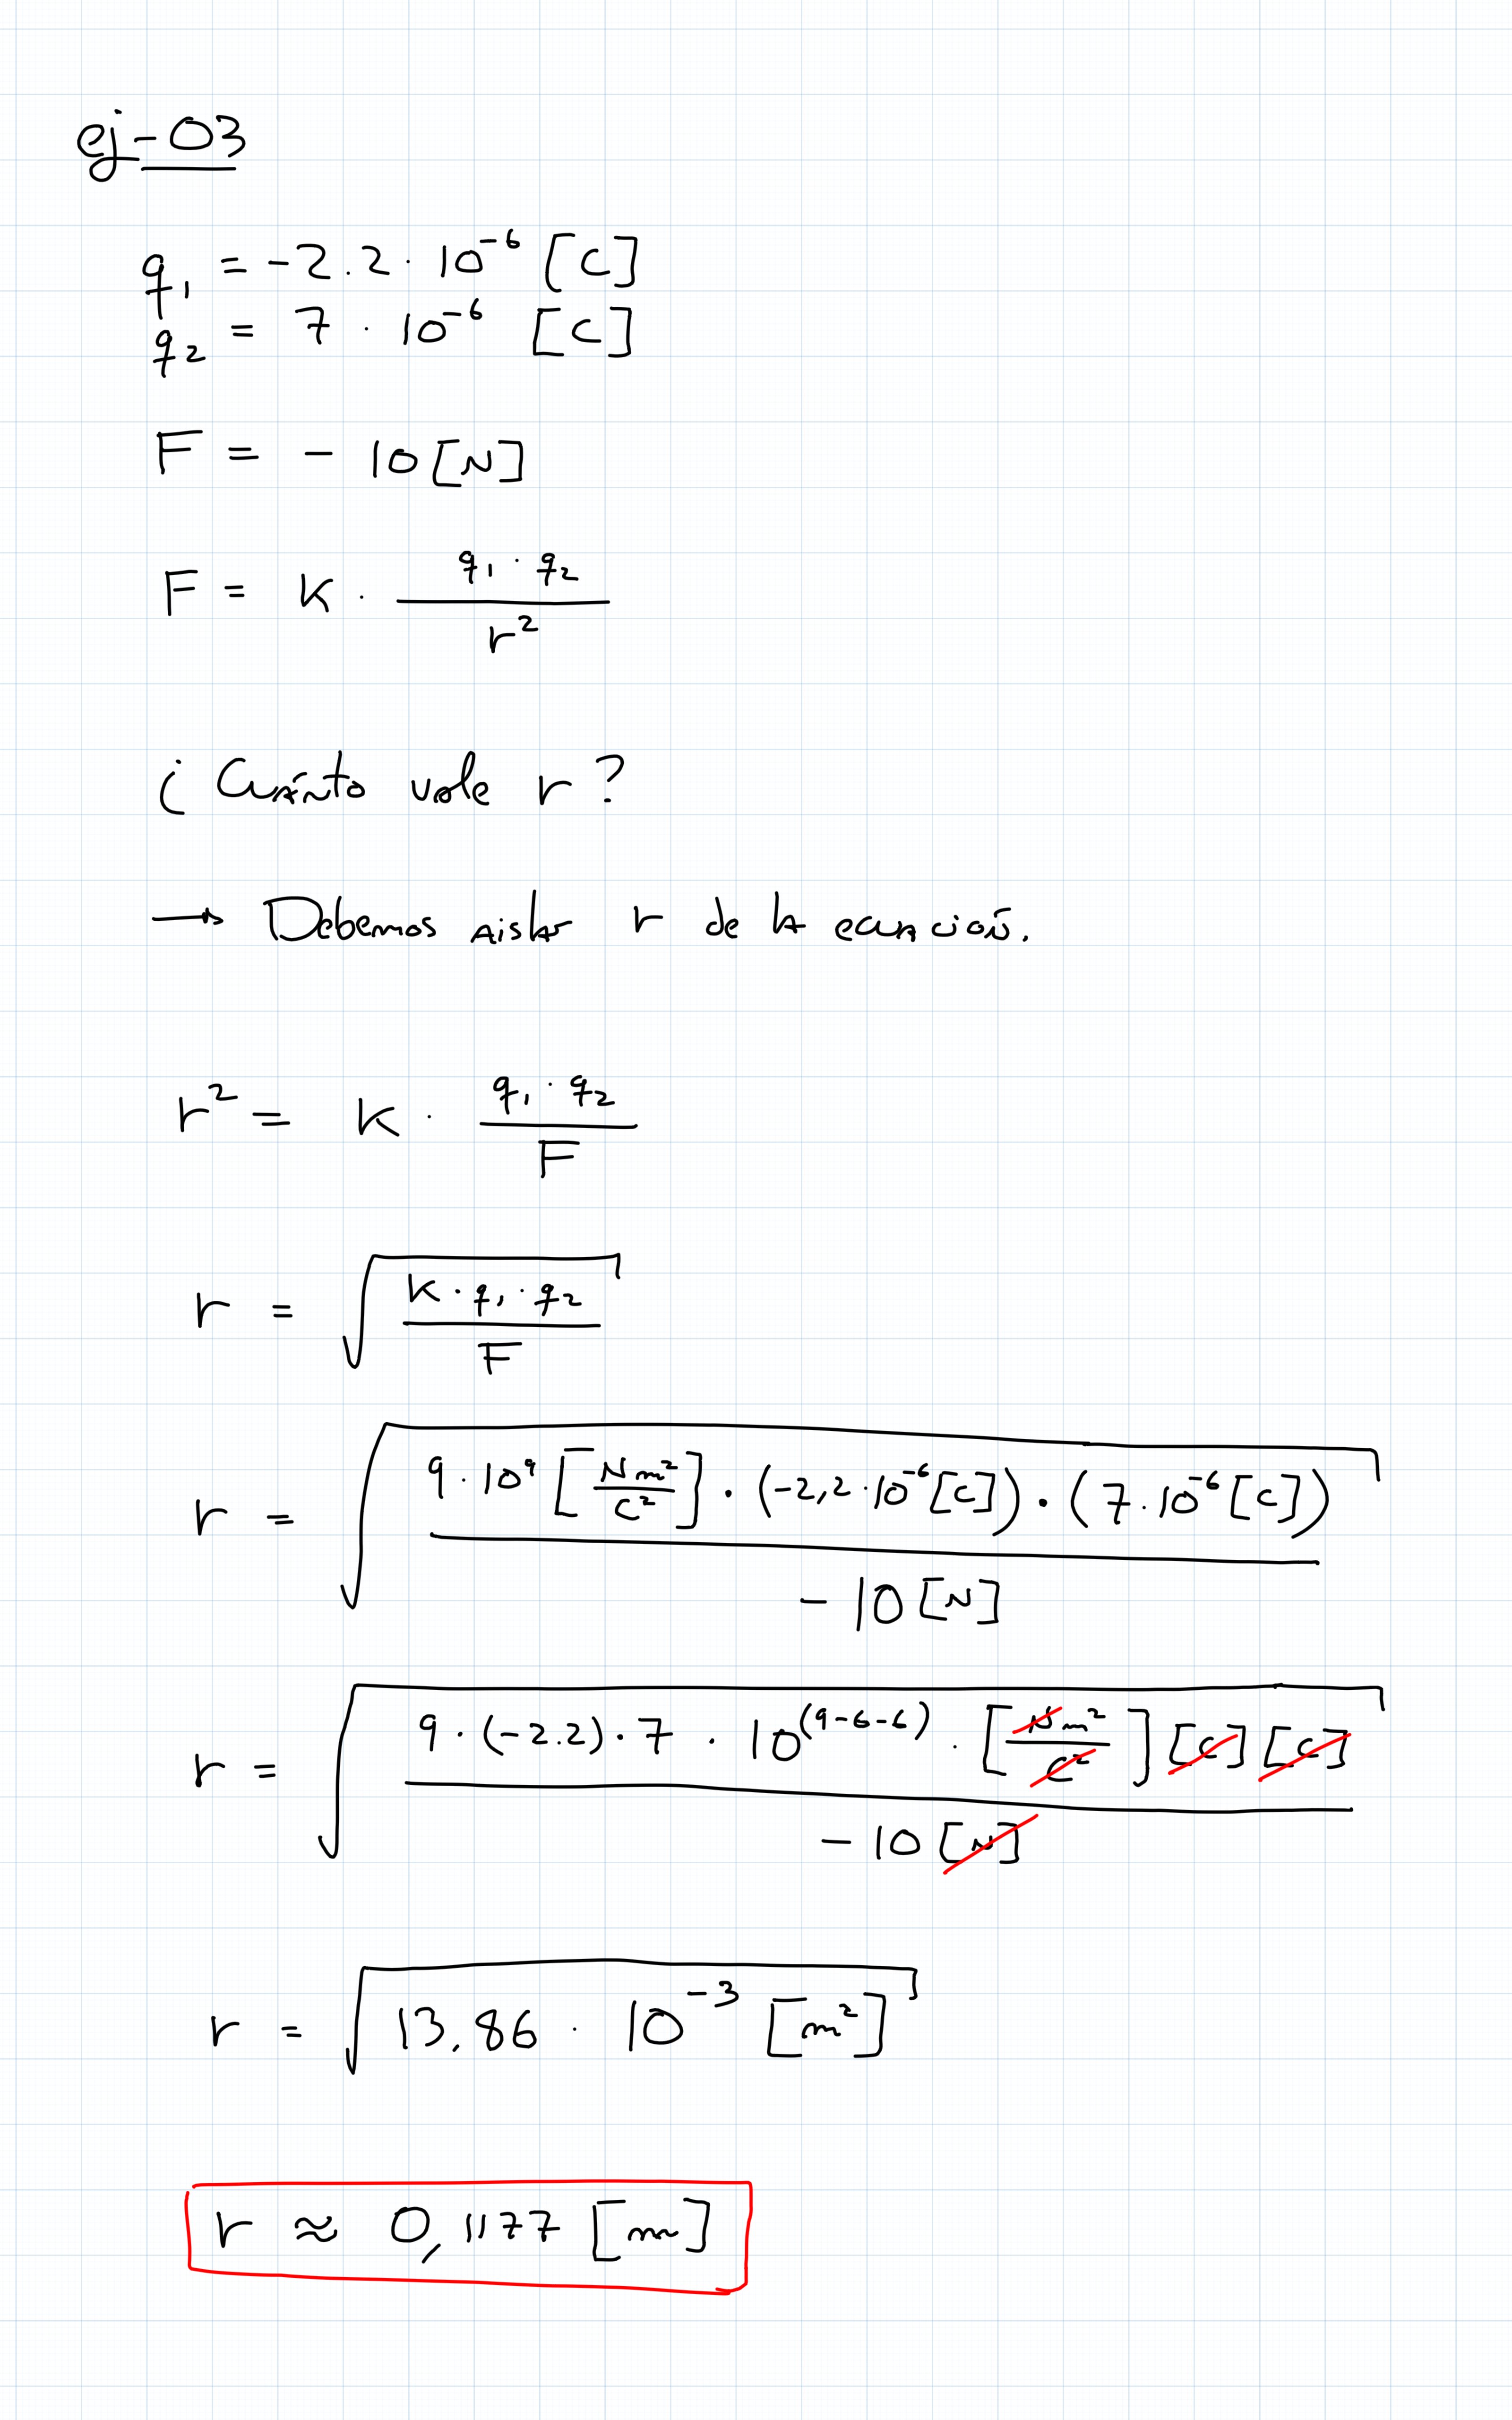 ej-03
q₁ = -2.2 · 10⁻⁶ [C]
q₂ = 7 · 10⁻⁶ [C]
F = - 10 [N]
F = K · (q₁ · q₂) / r²
¿Cuánto vale r?
→ Debemos aislar r de la ecuación.
r² = K · (q₁ · q₂) / F
r = √((K · q₁ · q₂) / F)
r = √((9 · 10⁹ [Nm²/C²] · (-2,2 · 10⁻⁶ [C]) · (7 · 10⁻⁶ [C])) / (-10 [N]))
r = √((9 · (-2.2) · 7 · 10^(9-6-6) · [Nm²/C²] [C] [C]) / (-10 [N]))
r = √(13.86 · 10⁻³ [m²])
r ≈ 0,1177 [m]